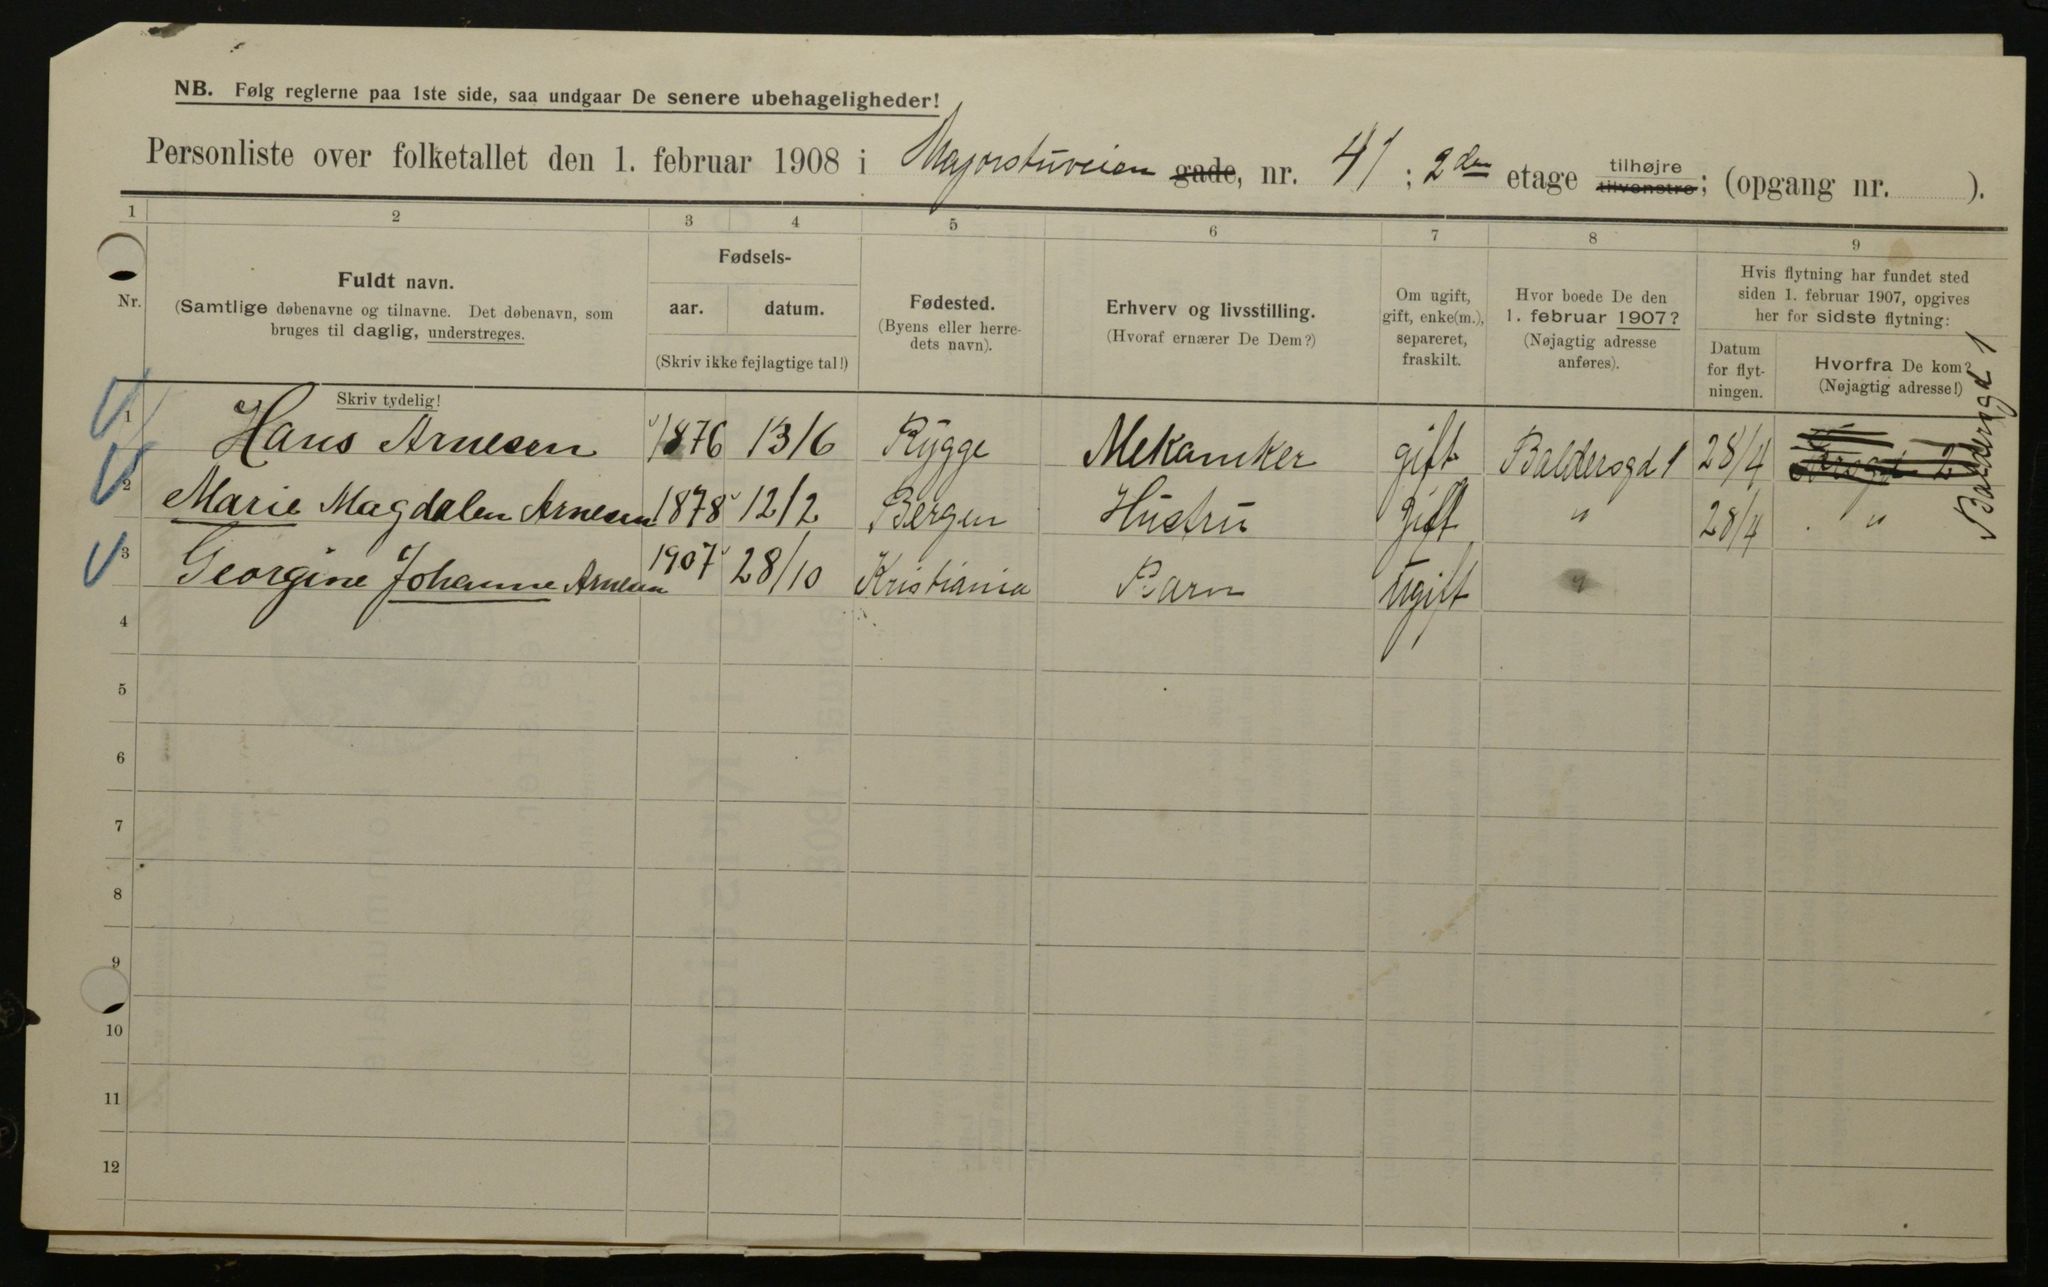 NB. Følg reglerne paa 1ste side, saa undgaar De senere ubehageligheder!
Personliste over folketallet den 1. februar 1908 i Majorstuveien gade, nr. 41 ; 2den etage tilhøjre tilvenstre; (opgang nr. ).
1 2 3 4 5 6 7 8 9
Nr.
Fuldt navn.
(Samtlige døbenavne og tilnavne. Det døbenavn, som
bruges til daglig, understreges.
Skriv tydelig!
Fødsels-
aar. datum.
(Skriv ikke fejlagtige tal!)
Fødested.
(Byens eller herre-
dets navn).
Erhverv og livsstilling.
(Hvoraf ernærer De Dem?)
Om ugift,
gift, enke(m.),
separeret,
fraskilt.
Hvor boede De den
1. februar 1907?
(Nøjagtig adresse
anføres).
Hvis flytning har fundet sted
siden 1. februar 1907, opgives
her for sidste flytning:
Datum
for flyt-
ningen.
Hvorfra De kom?
(Nøjagtig adresse!)
1 Hans Arnesen 1876 13/6 Rygge Mekaniker gift Baldersgd 1 28/4 Baldersgd 1
2 Marie Magdalen Arnesen 1878 12/2 Bergen Hustru gift " 28/4 "
3 Georgine Johanne Arnesen 1907 28/10 Kristiania Barn Ugift "
4
5
6
7
8
9
10
11
12